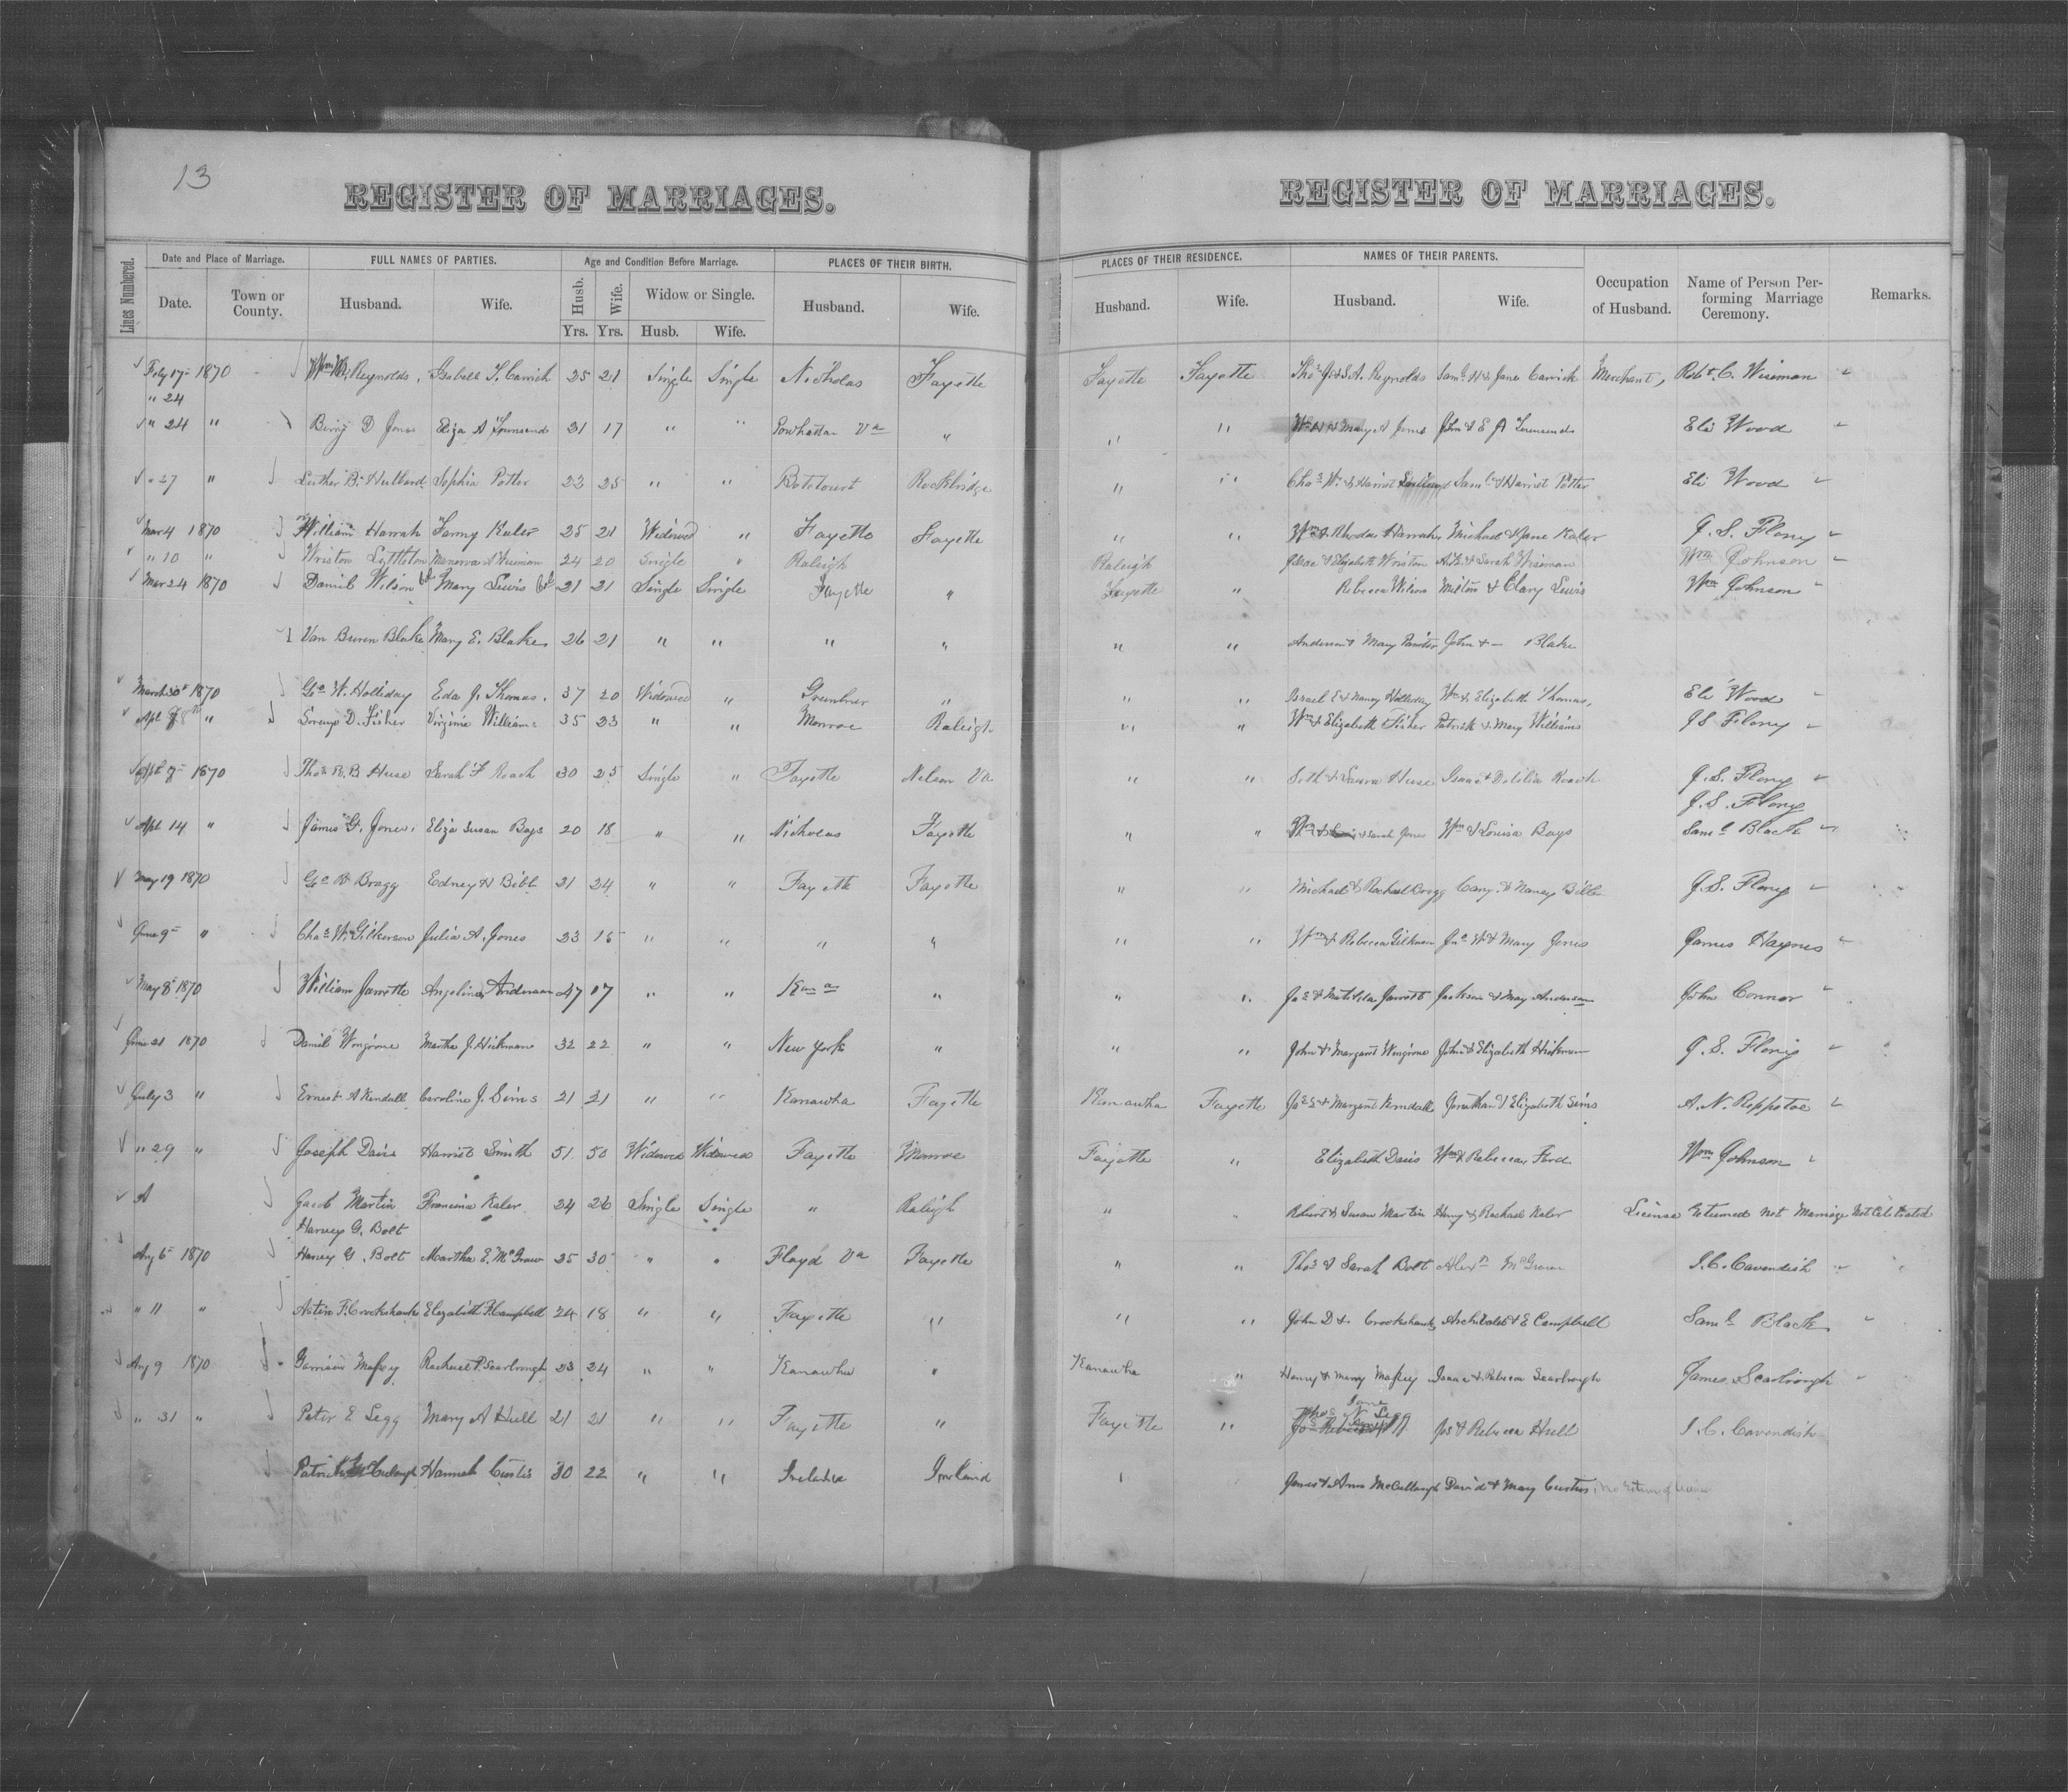 13
REGISTER OF MARRIAGES. REGISTER OF MARRIAGES.
Lines Numbered. Date and Place of Marriage. FULL NAMES OF PARTIES. Age and Condition Before Marriage. PLACES OF THEIR BIRTH. PLACES OF THEIR RESIDENCE. NAMES OF THEIR PARENTS. Occupation of Husband. Name of Person Performing Marriage Ceremony. Remarks.
Date. Town or County. Husband. Wife. Husb. Wife. Widow or Single. Husband. Wife. Husband. Wife. Husband. Wife.
Yrs. Yrs. Husb. Wife.
Feby 17 1870 Wm Reynolds Isabell S. Carrick 25 21 Single Single Nicholas Fayette Fayette Fayette Thos J. & S. A. Reynolds Saml H & Jane Carrick Merchant, Robt. C. Wiseman
" 24
" 24 " Berry D Jones Eliza A Townsend 31 17 " " Powhattan Va " " " Wm H & Mary A Jones John & E A Townsend Eli Wood
" 27 " Luther B. Hulbard Sophia Potter 22 25 " " Botetourt Rockbridge " " Chas W. & Harriet Saml & Harriet Potter Eli Wood
Mar 4 1870 William Harrah Fanny Kaler 25 21 Widowed " Fayette Fayette " " Wm & Rhoda Harrah Michael & Jane Kaler J. S. Flony
" 10 " Wriston Lyttleton Manerva A Wiseman 24 20 Single " Raleigh Raleigh & Elizabeth Wriston A. & Sarah Wiseman Wm Johnson
Mar 24 1870 Daniel Wilson Col Mary Lewis Col 21 21 Single Single Fayette " Fayette " Rebecca Wilson Milton & Clary Lewis Wm Johnson
Van Buren Blake Mary E. Blake 26 21 " " " " " " Anderson & Mary John & — Blake
March 30 1870 Geo W. Holliday Eda J. Thomas 37 20 Widowed " Greenbrier " " " Israel E & Nancy Holliday Wm & Elizabeth Thomas, Eli Wood
Apl 8th " D. Fisher Virginia Williams 35 23 " " Monroe Raleigh " " Wm & Elizabeth Fisher Patrick & Mary Williams J S Flony
Apl 7 1870 Thos R. B Huse Sarah F Roach 30 25 Single " Fayette Nelson Va " " Seth & Laura Huse Isaac & Delilia Roach J. S. Flony
J. S. Flony
Apl 14 " James G. Jones Eliza Susan Bays 20 18 " " Nicholas Fayette " " Wm & Sarah Jones Wm & Louisa Bays Saml Black
May 19 1870 Geo W Bragg Edney H Bibb 21 24 " " Fayette Fayette " " Michael & Rachael Bragg Cary & Nancy Bibb J. S. Flony
June 9 " Chas W. Gilkerson Julia A. Jones 23 15 " " " " " " Wm & Rebecca Gilkerson Jno W & Mary Jones James Haynes
May 8 1870 William Jarrette Angeline Anderson 47 17 " " Kan a " " " Jas & Matilda Jarrett Jackson & May Anderson John Connor
June 21 1870 Daniel Wingrove Martha J. Hickman 32 22 " " New York " " " John & Margaret Wingrove John & Elizabeth Hickman J. S. Flony
July 3 " Ernest A Kendall Caroline J. Sims 21 21 " " Kanawha Fayette Kanawha Fayette & Margaret Kendall Jonathan & Elizabeth Sims A. N. Rippetoe
" 29 " Joseph Davis Harriet Smith 51 50 Widowed Widowed Fayette Monroe Fayette " Elizabeth Davis Wm & Rebecca Ford Wm Johnson
A Jacob Martin Francina Kaler 24 26 Single Single " Raleigh " " Robert & Susan Martin Henry & Rachael Kaler License Returned not Marriage Not Celebrated
Harvey G. Bolt
Aug 6 1870 Harvey G. Bolt Martha E. McGraw 25 30 " " Floyd Va Fayette " " Thos & Sarah Bolt Alexr McGraw J. C. Cavendish
" 11 " Astin F. Crookshanks Elizabeth F. Campbell 24 18 " " Fayette " " " John D & Crookshanks Archibald & E Campbell Saml Black
Aug 9 1870 Garrison Massey Rachael P. Scarbrough 23 24 " " Kanawha " Kanawha " Henry & Mary Massey Isaac & Rebecca Scarbrough James Scarbrough
" 31 " Peter E Legg Mary A Hull 21 21 " " Fayette " Fayette " Thos N Jane Legg Jos & Rebecca Hull J. C. Cavendish
Patrick McCulough Hannah Curtis 30 22 " " Ireland Ireland James & Ann McCullough David & Mary Curtis, No return of license